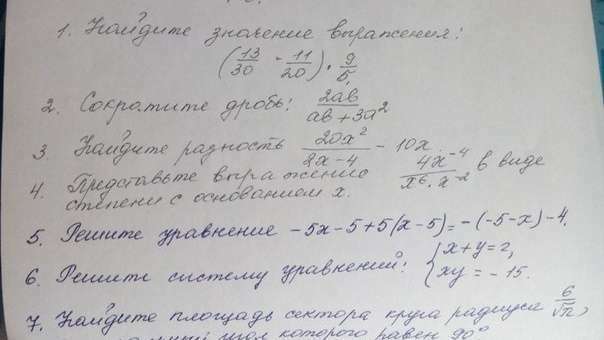 1. Найдите значение выражения:
(13/30 - 11/20) · 9/5
2. Сократите дробь: 2ab/(ab + 3a²)
3. Найдите разность 20x²/(2x-4) - 10x.
4. Представьте выражение 4x⁻⁴/(x⁶·x⁻²) в виде
степени с основанием x.
5. Решите уравнение -5x-5+5(x-5)=-(-5-x)-4.
6. Решите систему уравнений: { x+y=2, xy=-15.
7. Найдите площадь сектора круга радиуса 6/√π,
угол которого равен 90°